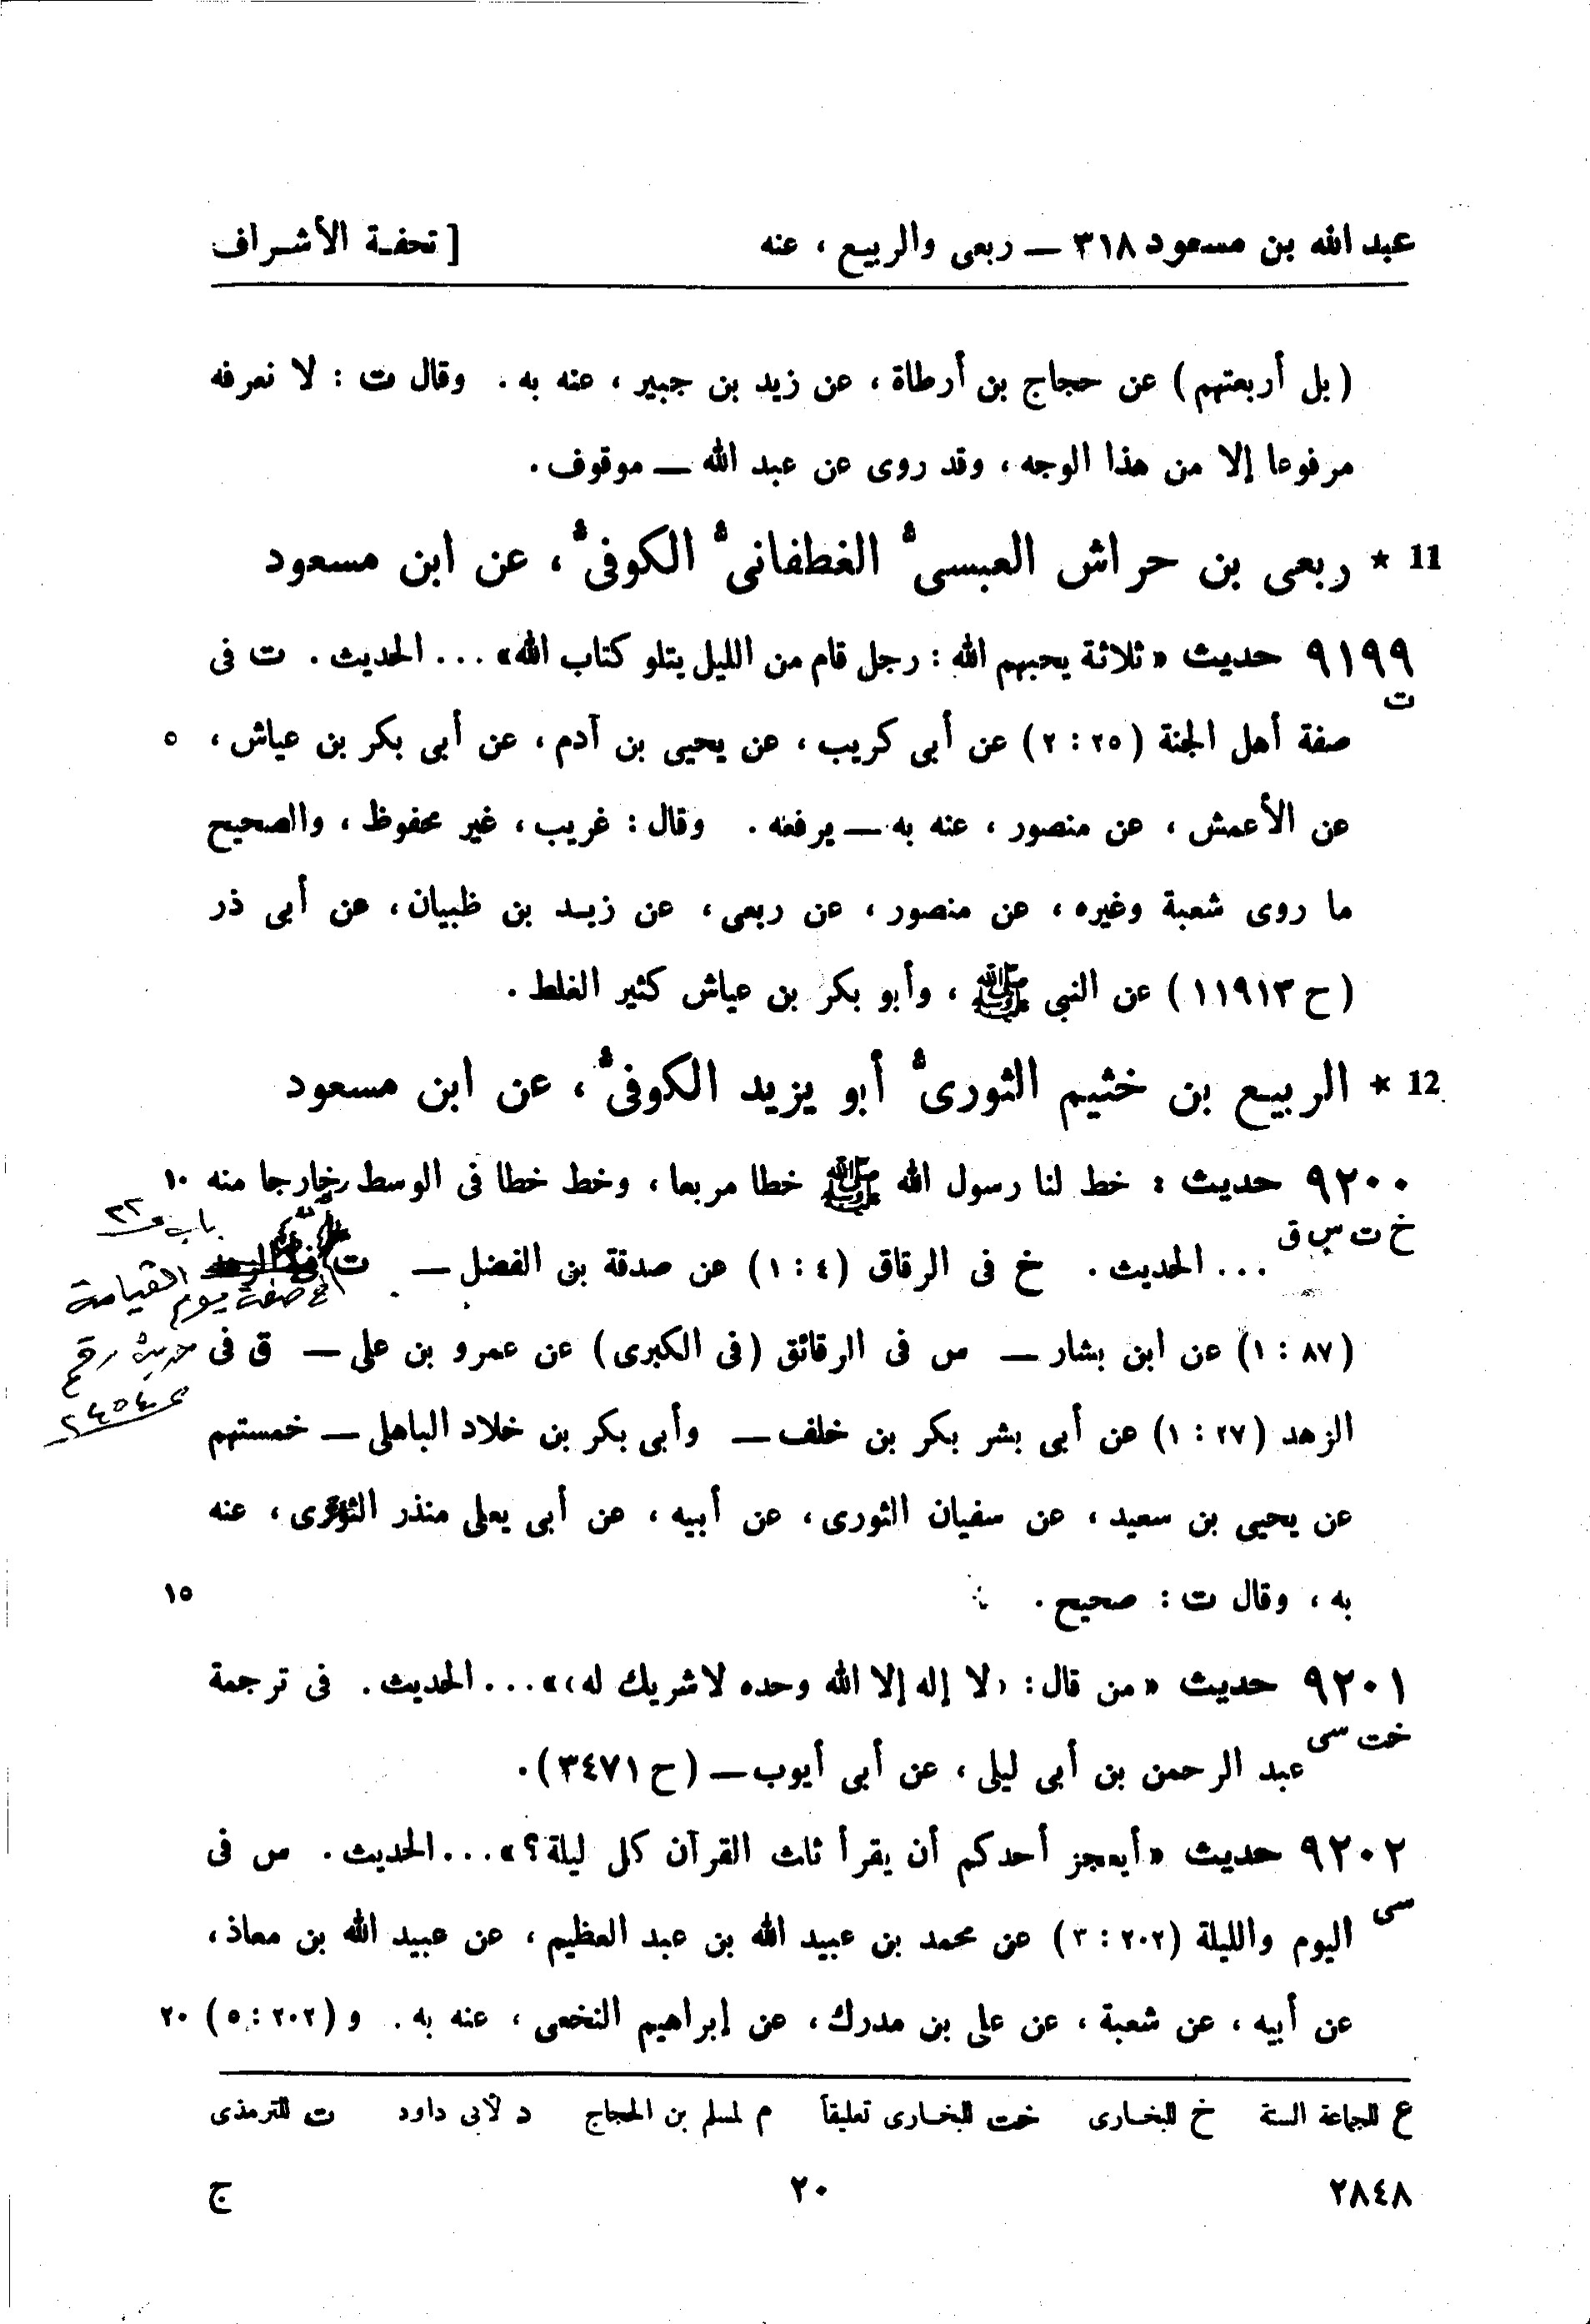 عبد الله بن مسعود ٣١٨ — ربعى والربيع ، عنه [ تحفة الأشراف
( بل أربعتهم ) عن حجاج بن أرطاة ، عن زيد بن جبير ، عنه به . وقال ت : لا نعرفه
مرفوعا إلا من هذا الوجه ، وقد روى عن عبد الله — موقوف .
11 * ربعى بن حراش العبسىّ الغطفانىّ الكوفىّ ، عن ابن مسعود
٩١٩٩ حديث « ثلاثة يحبهم الله : رجل قام من الليل يتلو كتاب الله » ... الحديث . ت فى
ت
صفة أهل الجنة ( ٢٥ : ٢ ) عن أبى كريب ، عن يحيى بن آدم ، عن أبى بكر بن عياش ، ٥
عن الأعمش ، عن منصور ، عنه به — يرفعه . وقال : غريب ، غير محفوظ ، والصحيح
ما روى شعبة وغيره ، عن منصور ، عن ربعى ، عن زيد بن ظبيان ، عن أبى ذر
( ح ١١٩١٣ ) عن النبى ﷺ ، وأبو بكر بن عياش كثير الغلط .
12 * الربيع بن خثيم الثورىّ أبو يزيد الكوفىّ ، عن ابن مسعود
٩٢٠٠ حديث : خط لنا رسول الله ﷺ خطا مربعا ، وخط خطا فى الوسط خارجا منه ١٠
خ ت س ق
... الحديث . خ فى الرقاق ( ٤ : ١ ) عن صدقة بن الفضل — ت فى الزهد
باب ٢٢
فى صفة يوم القيامة
حديث رقم
٢٤٥٤
( ٨٧ : ١ ) عن ابن بشار — س فى الرقائق ( فى الكبرى ) عن عمرو بن على — ق فى
الزهد ( ٢٧ : ١ ) عن أبى بشر بكر بن خلف — وأبى بكر بن خلاد الباهلى — خمستهم
عن يحيى بن سعيد ، عن سفيان الثورى ، عن أبيه ، عن أبى يعلى منذر الثورى ، عنه
به ، وقال ت : صحيح . ١٥
٩٢٠١ حديث « من قال : ‹ لا إله إلا الله وحده لا شريك له › » ... الحديث . فى ترجمة
خت سى
عبد الرحمن بن أبى ليلى ، عن أبى أيوب — ( ح ٣٤٧١ ) .
٩٢٠٢ حديث « أيعجز أحدكم أن يقرأ ثلث القرآن كل ليلة ؟ » ... الحديث . س فى
سى
اليوم والليلة ( ٢٠٢ : ٣ ) عن محمد بن عبيد الله بن عبد العظيم ، عن عبيد الله بن معاذ ،
عن أبيه ، عن شعبة ، عن على بن مدرك ، عن إبراهيم النخعى ، عنه به . و ( ٢٠٢ : ٥ ) ٢٠
ع للجماعة الستة خ للبخارى خت للبخارى تعليقاً م لمسلم بن الحجاج د لأبى داود ت للترمذى
٢٨٤٨ ٢٠ ج